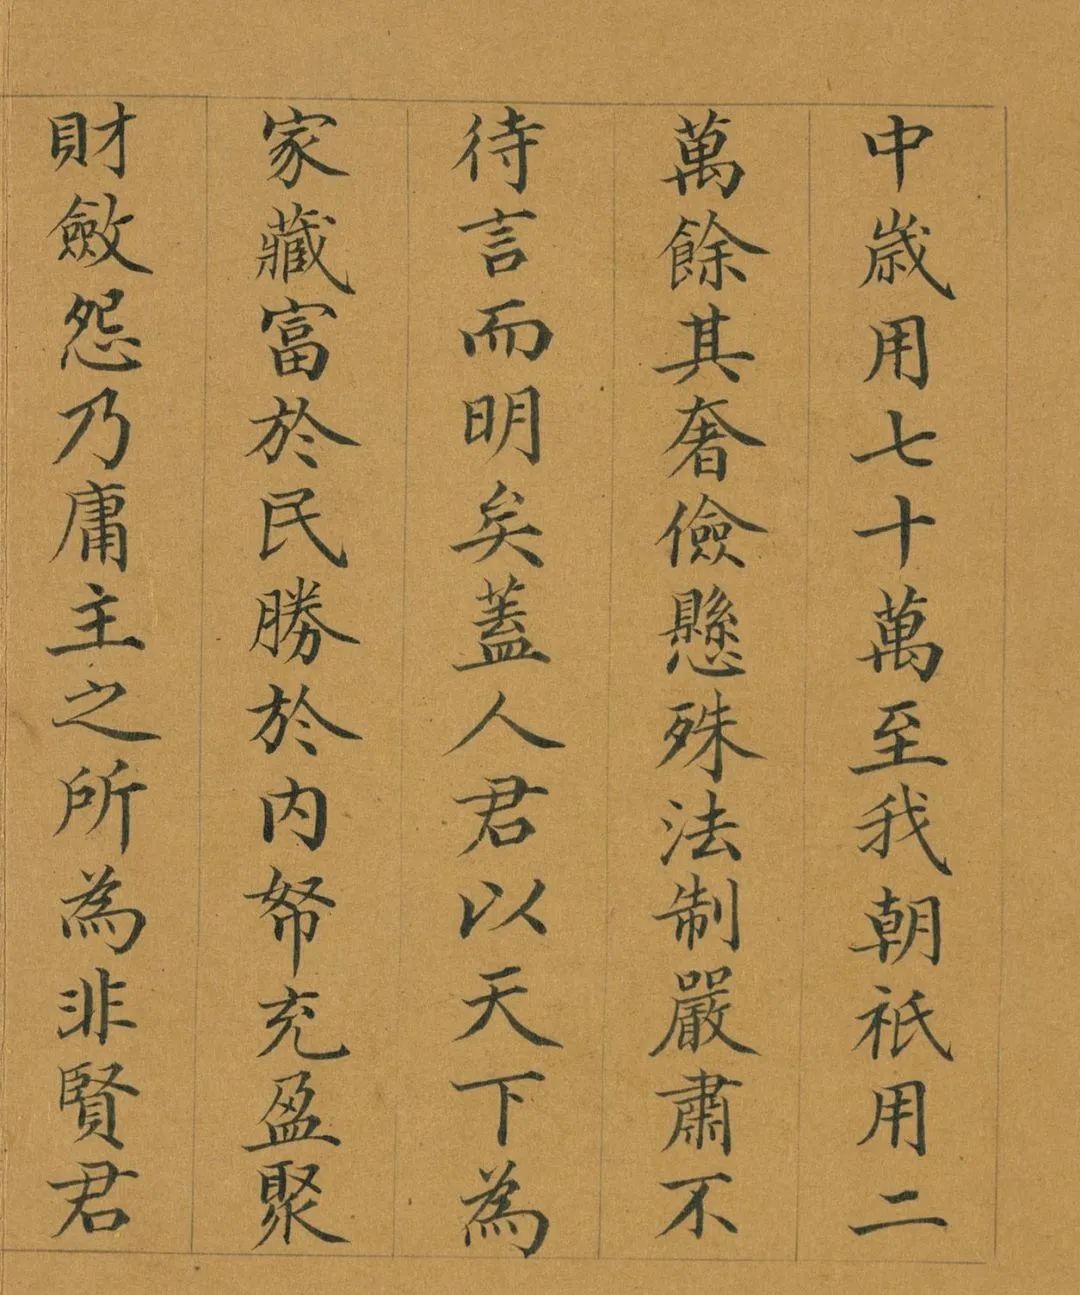 中歲用七十萬至我朝祇用二
萬餘其奢儉懸殊法制嚴肅不
待言而明矣蓋人君以天下為
家藏富於民勝於內帑充盈聚
財斂怨乃庸主之所為非賢君